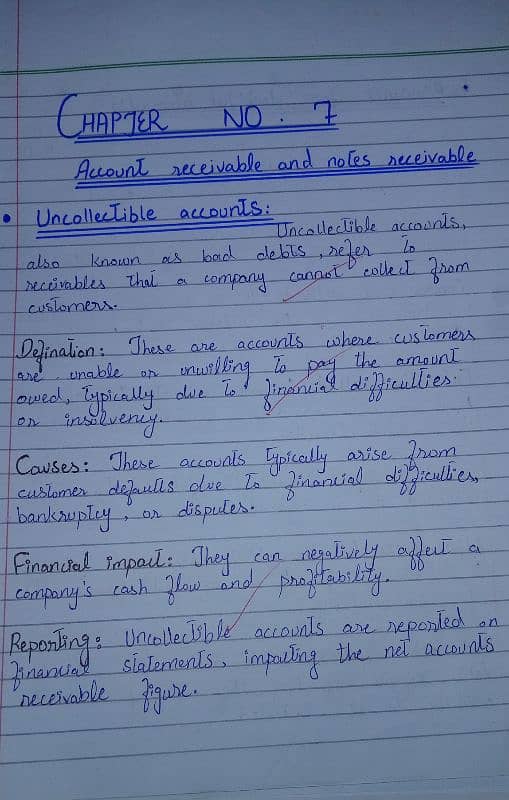 CHAPTER NO. 7
Account receivable and notes receivable
• Uncollectible accounts:
Uncollectible accounts,
also known as bad debts, refer to
receivables that a company cannot collect from
customers.
Defination: These are accounts where customers
are unable or unwilling to pay the amount
owed, typically due to financial difficulties
or insolvency.
Causes: These accounts typically arise from
customer defaults due to financial difficulties,
bankruptcy, or disputes.
Financial impact: They can negatively affect a
company's cash flow and profitability.
Reporting: Uncollectible accounts are reported on
financial statements, impacting the net accounts
receivable figure.